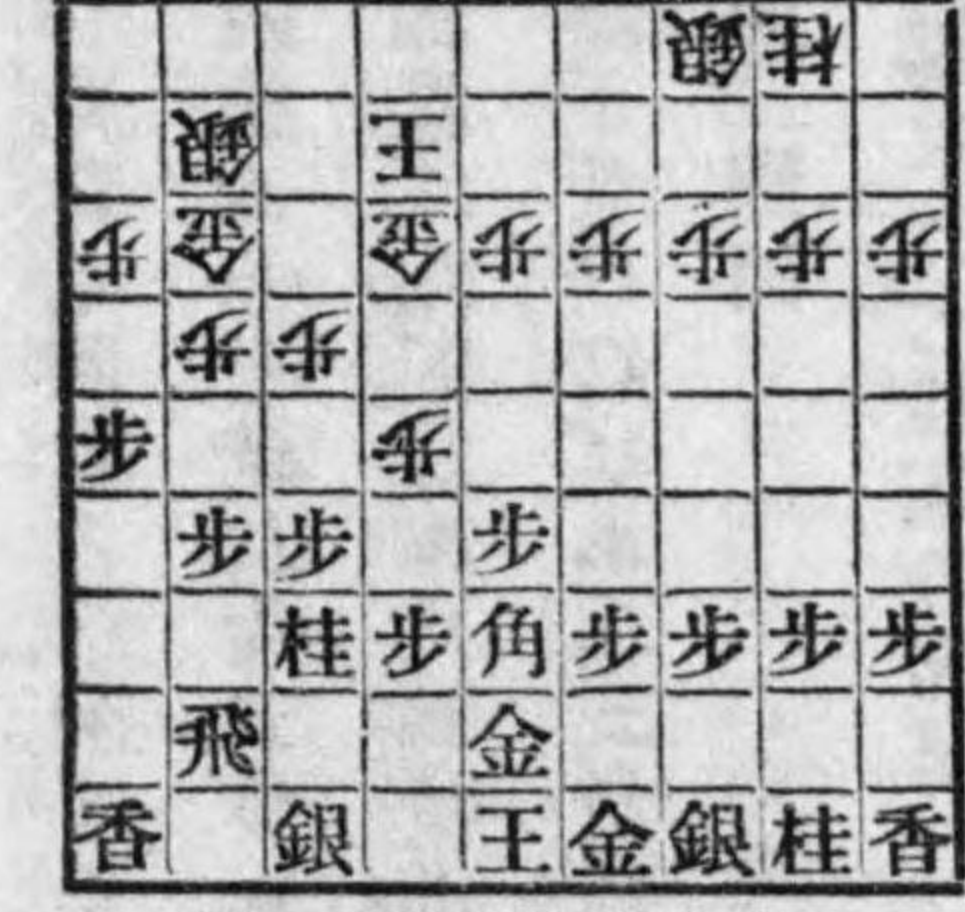 銀桂
銀王
歩金金歩歩歩歩歩
歩歩
歩歩
歩歩歩
桂歩角歩歩歩歩
飛金
香銀王金銀桂香